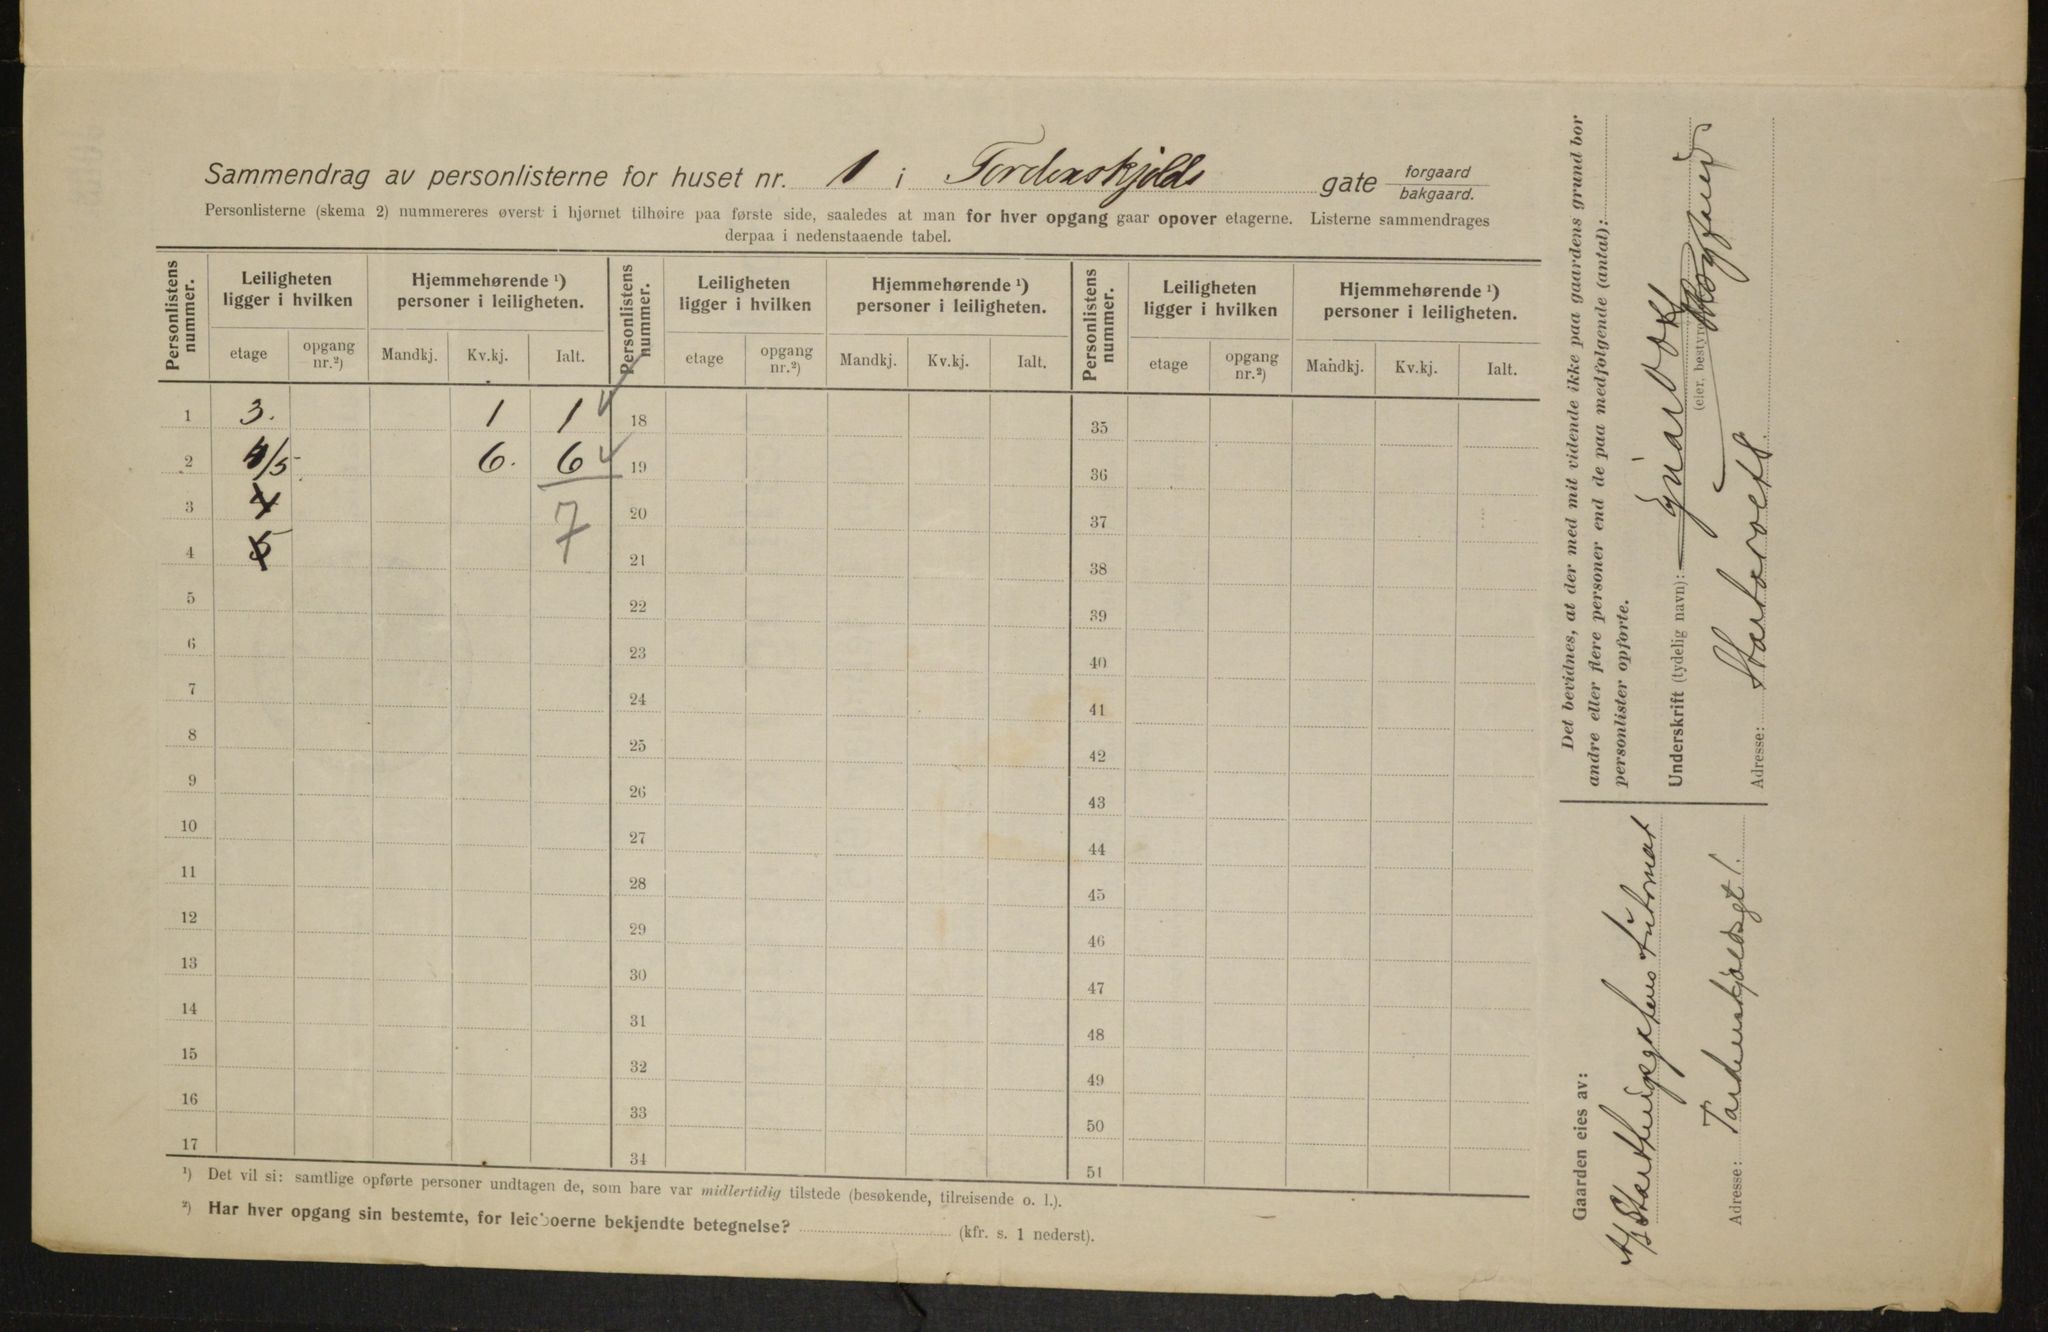 Sammendrag av personlisterne for huset nr. 1 i Tordenskjolds gate forgaard
bakgaard.
Personlisterne (skema 2) nummereres øverst i hjørnet tilhøire paa første side, saaledes at man for hver opgang gaar opover etagerne. Listerne sammendrages
derpaa i nedenstaaende tabel.
Personlistens nummer. Leiligheten ligger i hvilken Hjemmehørende ¹) personer i leiligheten. Personlistens nummer. Leiligheten ligger i hvilken Hjemmehørende ¹) personer i leiligheten. Personlistens nummer. Leiligheten ligger i hvilken Hjemmehørende ¹) personer i leiligheten.
etage opgang nr.²) Mandkj. Kv.kj. Ialt. etage opgang nr.²) Mandkj. Kv.kj. Ialt. etage opgang nr.²) Mandkj. Kv.kj. Ialt.
1 3. 1 1 18 35
2 4/5 6. 6 19 36
3 4 7 20 37
4 5 21 38
5 22 39
6 23 40
7 24 41
8 25 42
9 26 43
10 27 44
11 28 45
12 29 46
13 30 47
14 31 48
15 32 49
16 33 50
17 34 51
¹) Det vil si: samtlige opførte personer undtagen de, som bare var midlertidig tilstede (besøkende, tilreisende o. l.).
²) Har hver opgang sin bestemte, for leieboerne bekjendte betegnelse? (kfr. s. 1 nederst).
Det bevidnes, at der med mit vidende ikke paa gaardens grund bor
andre eller flere personer end de paa medfølgende (antal):
personlister opførte.
Underskrift (tydelig navn):
(eier, bestyrer
Adresse: Stortorvet
Gaarden eies av:
A/S Automat
Adresse: Tordenskjoldsgt 1.